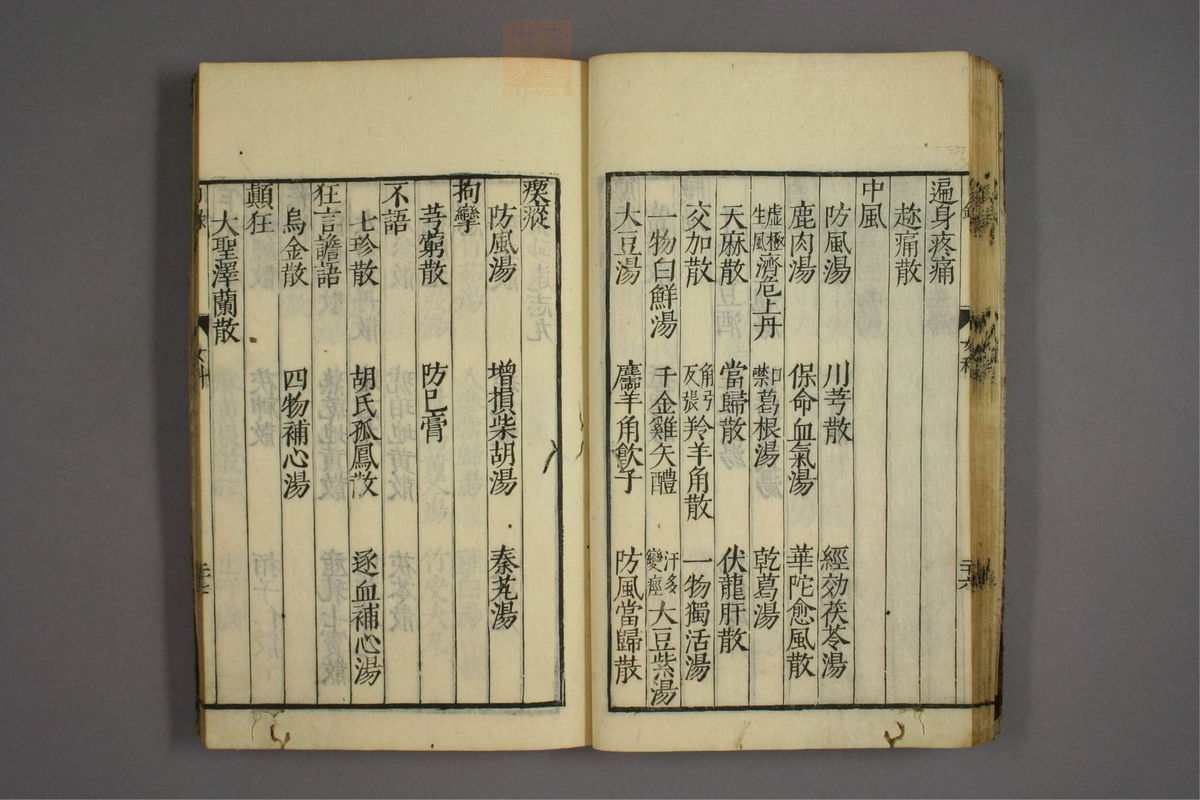 遍身疼痛
趂痛散
中風
防風湯 川芎散 經効茯苓湯
鹿肉湯 保命血氣湯 華陀愈風散
虛極生風濟危上丹 口噤葛根湯 乾葛湯
天麻散 當歸散 伏龍肝散
交加散 角弓反張羚羊角散 一物獨活湯
一物白鮮湯 千金雞矢醴 汗多變痙大豆紫湯
大豆湯 麢羊角飲子 防風當歸散
瘈瘲
防風湯 增損柴胡湯 秦艽湯
拘攣
芎藭散 防巳膏
不語
七珍散 胡氏孤鳳散 逐血補心湯
狂言譫語
烏金散 四物補心湯
顛狂
大聖澤蘭散